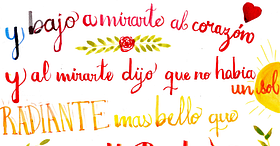 y bajo a mirarte al corazón
y al mirarte dijo que no había
un sol
RADIANTE mas bello que